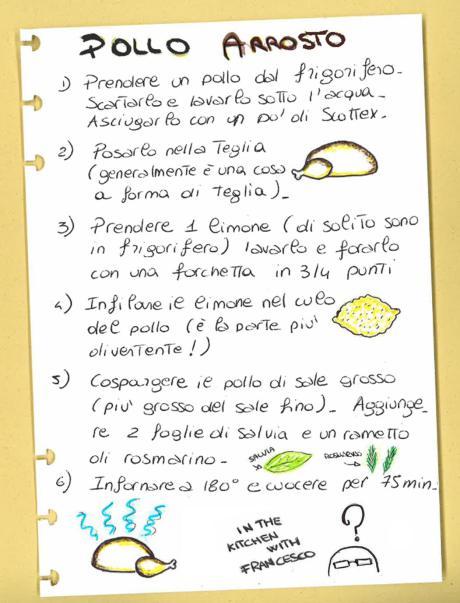 POLLO ARROSTO
1) Prendere un pollo dal frigorifero.
Scartarlo e lavarlo sotto l'acqua.
Asciugarlo con un po' di Scottex.
2) Posarlo nella Teglia
(generalmente è una cosa
a forma di teglia)_
3) Prendere 1 limone (di solito sono
in frigorifero) lavarlo e forarlo
con una forchetta in 3/4 punti
4) Infilare il limone nel culo
del pollo (è la parte piu'
divertente!)
5) Cospargere il pollo di sale grosso
(piu' grosso del sale fino)_ Aggiunge_
re 2 foglie di salvia e un rametto
di rosmarino_ SALVIA ROSMARINO
6) Infornare a 180° e cuocere per 75 min.
IN THE
KITCHEN
WITH
FRANCESCO
?